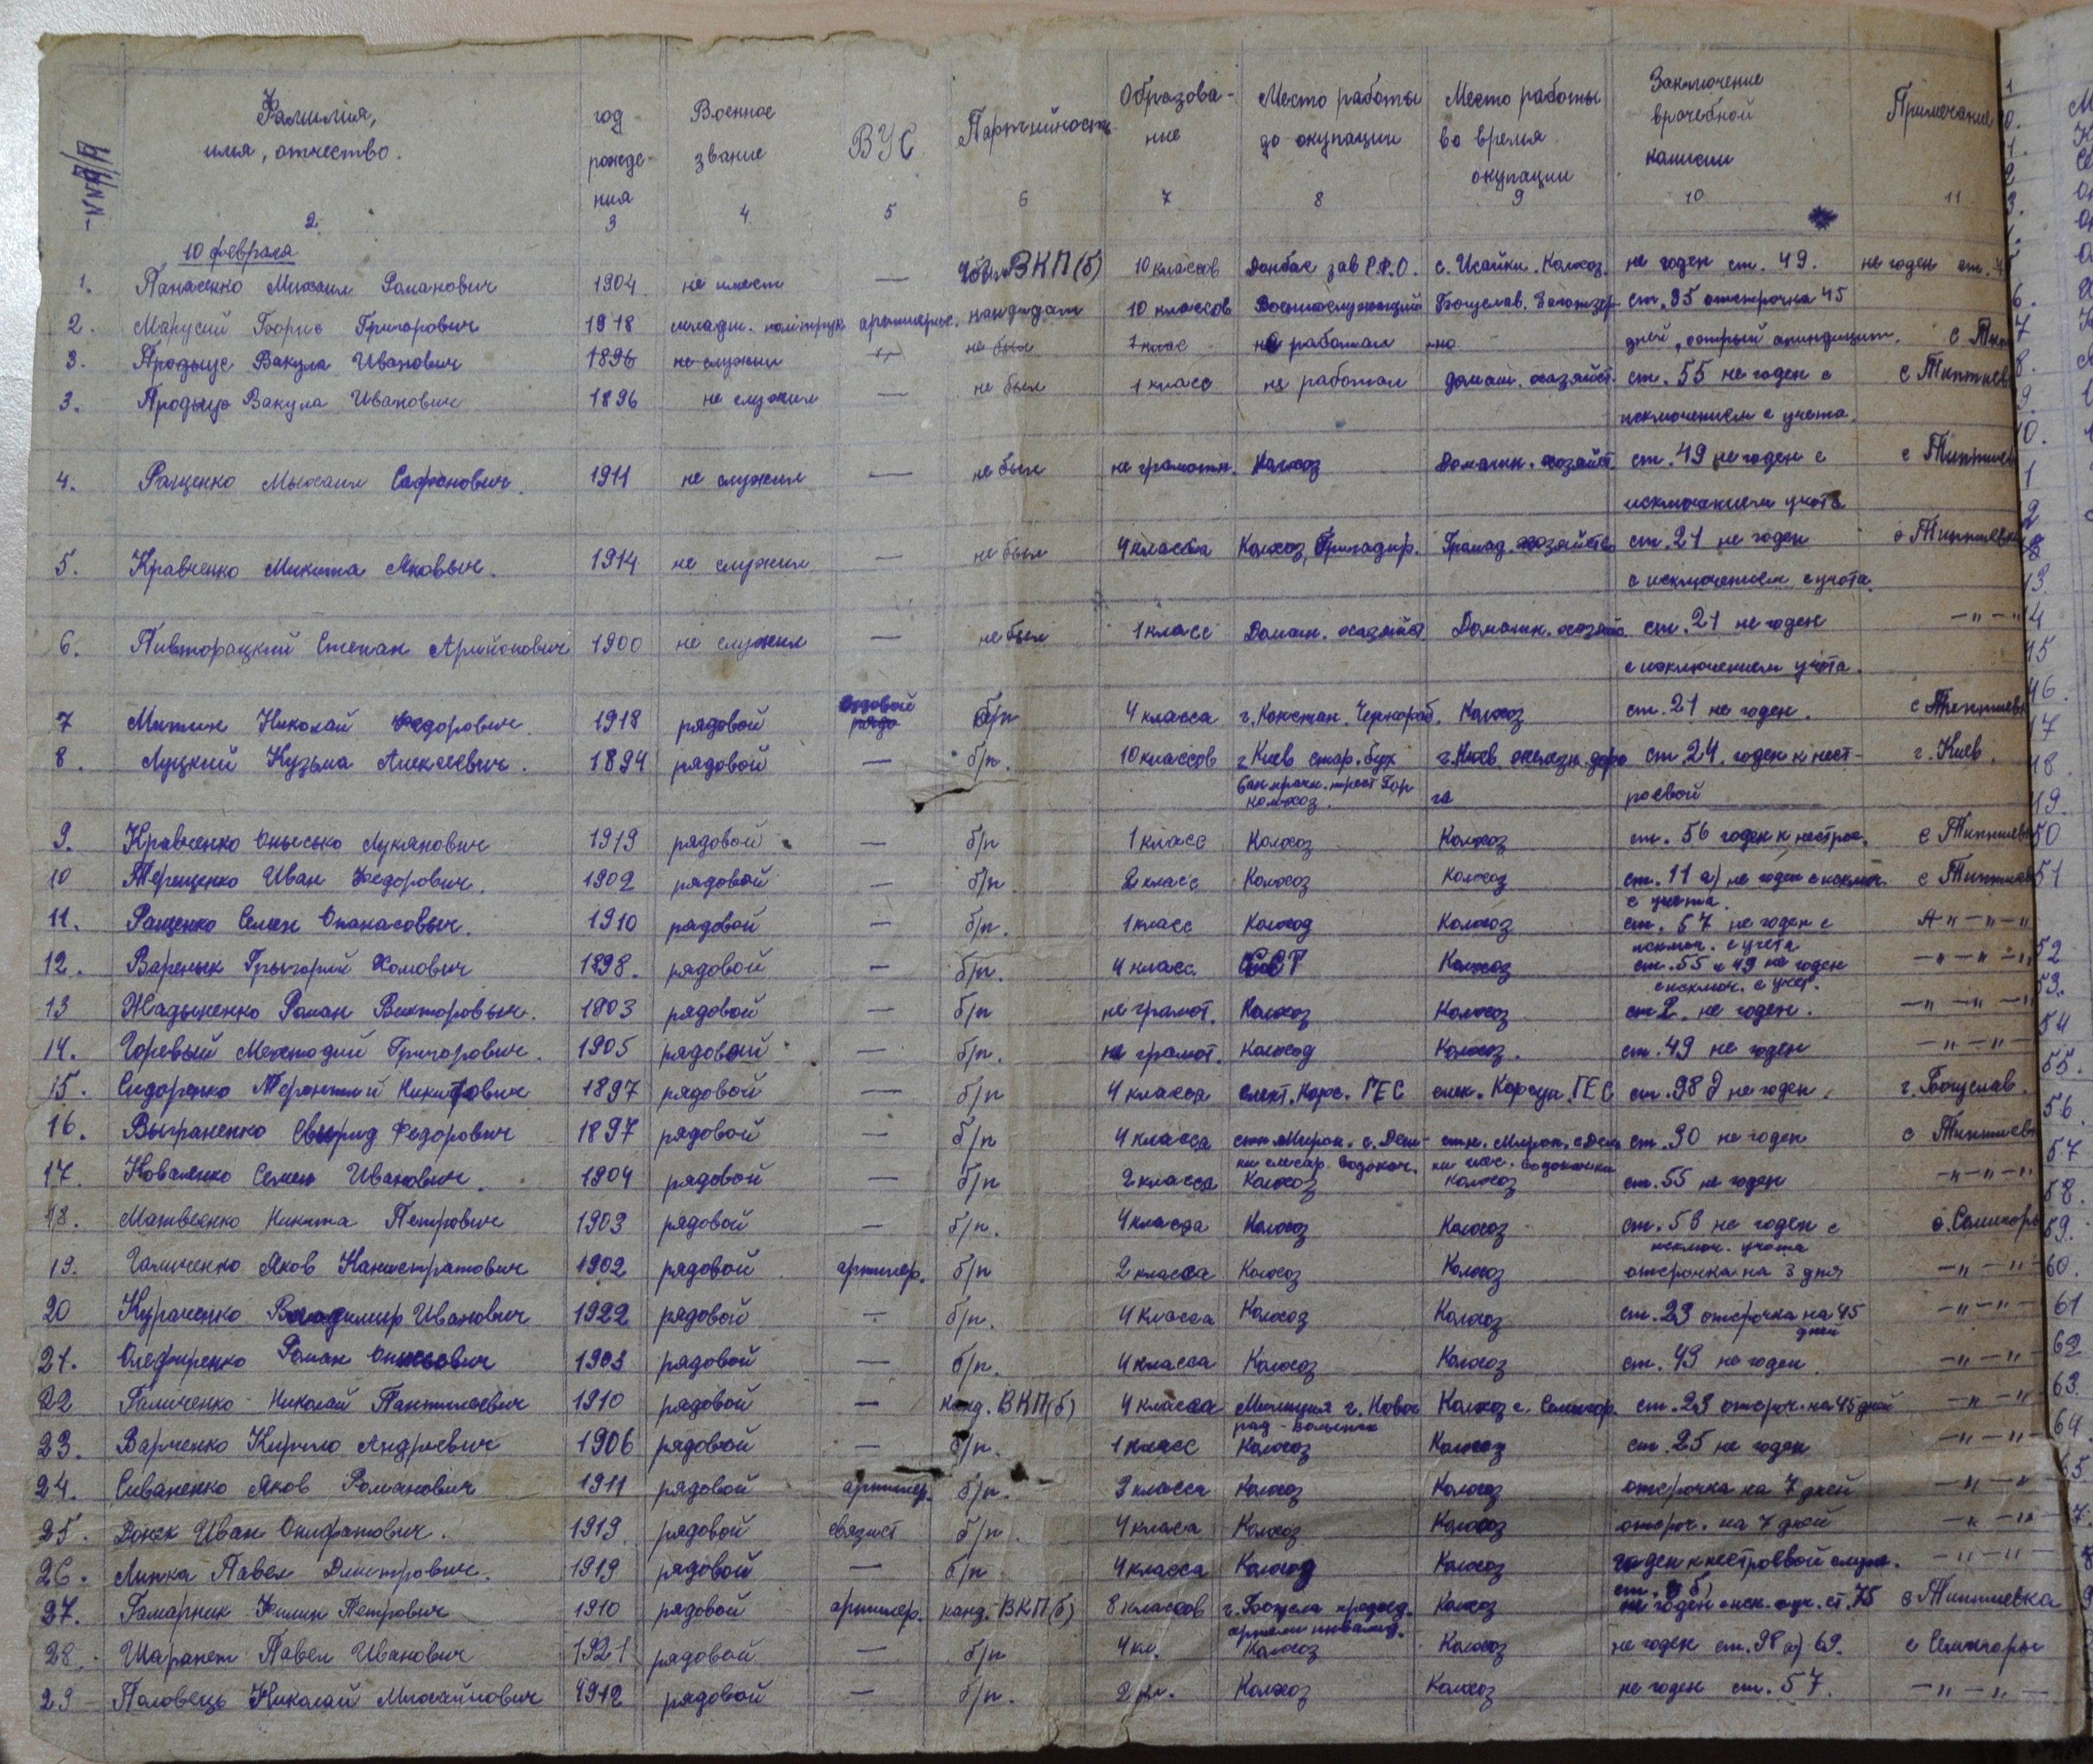 №№ п/п Фамилия, имя, отчество. год рождения Военное звание ВУС Партийность Образование Место работы до окупации Место работы во время окупации Заключение врачебной камисии Примечание
2 3 4 5 6 7 8 9 10 11
10 февраля
1. Панасенко Михаил Романович 1904 не имеет — ВКП(б) 10 классов Донбас зав с. Исайки. Колхоз. не годен ст. 49. не годен ст.
2. Марусий Григорович 1918 младш. политрук кандидат 10 классов Военнослужащий Богуслав. ст. 95 отстрочка 45
3. Продыус Вакула Иванович 1896 не служил — не был 1 клас не работал дней, острый апиндицит. с
3. Продыус Вакула Иванович 1896 не служил — не был 1 класс не работал домаш. хазяйст. ст. 55 не годен с с Типтиев
исключением с учета.
4. Ращенко Мыхаил Сафонович. 1911 не служил — не был не грамотн. Колхоз Домашн. хозяйст ст. 49 не годен с с Типтиев
исключением учота
5. Кравченко Микита Яковыч. 1914 не служил — не был 4 класса Колхоз, Бригадир. Громад. хозяйство ст. 21 не годен с Типтиевка
с исключением с учота.
6. Пивторацкий Степан 1900 не служил — не был 1 класс Домашн. хазяйст Домашн. хозяйс ст. 21 не годен —"—"
с исключением учота.
7 Митин Николай Федорович. 1918 рядовой б/п 4 класса г. Констан. Чернораб. Колхоз ст. 21 не годен. с Типтиевк
8. Луцкий Кузьма Алексеевич. 1894 рядовой — б/п. 10 классов г. Киев стар. бух г. Киев железн. доро ст. 24. годен к нест- г. Киев.
колхоз. га роевой
9. Кравченко Онысько Луканович 1919 рядовой — б/п 1 класс Колхоз Колхоз ст. 56 годен к нестрое. с Типтиев
10 Терещенко Иван Федорович. 1902 рядовой — б/п 2 класс Колхоз Колхоз ст. 11 а) не годен с исключ. с Типтиев
с учета.
11. Ращенко Семен Опанасовыч. 1910 рядовой — б/п. 1 класс Колхоз Колхоз ст. 57 не годен с —"—"—"
исключ. с учета
12. Варенык Грыгорий Хомович 1898. рядовой — б/п. 4 класс. Колхоз ст. 55 и 49 не годен —"—"—"
с исключ. с учет.
13 Жадыненко Роман Викторовыч. 1903 рядовой — б/п не грамот. Колхоз Колхоз ст 2. не годен. —"—"—"
14. Горевый Мехтодий Григорович. 1905 рядовой — б/п. не грамот. Колхоз Колхоз. ст. 49 не годен —"—"—
15. Сидоренко Терентий Никитович 1897 рядовой — б/п 4 класса елект. Корс. ГЕС елек. Корсун. ГЕС ст. 98 д не годен. г. Богуслав.
16. Выграненко Свырид Федорович 1897 рядовой — б/п 4 класса стн Мирон. с. Деш- стн. Мирон. с. Деш ст. 30 не годен с Типтиев
ки слесар. водокач. ки водокачки
17. Коваленко Семен Иванович. 1904 рядовой — б/п 2 класса Колхоз колхоз ст. 55 не годен —"—"—"
18. Матвеенко Никита Петрович 1903 рядовой — б/п. 4 класса Колхоз Колхоз ст. 53 не годен с с. Семигоры
исключ. учота
19. Галиченко Яков Каннстратович 1902 рядовой артилер. б/п 2 класса Колхоз Колхоз отсрочка на 3 дня —"—"—
20 Кураченко Владимир Иванович 1922 рядовой — б/п. 4 класса Колхоз Колхоз ст. 23 отсрочка на 45 —"—"—
дней
21. Олефиренко Роман 1903 рядовой — б/п. 4 класса Колхоз Колхоз ст. 49 не годен. —"—"—
22 Галиченко Николай Пантилеевич 1910 рядовой — канд. ВКП(б) 4 класса Милиция г. Новог Колхоз с. Семигор. ст. 23 отсроч. на 45 дней —"—"
рад-Волынск
23. Варченко Кирило Андреевич 1906 рядовой — б/п. 1 класс Колхоз Колхоз ст. 25 не годен —"—"—
24. Сиваненко Яков Романович 1911 рядовой артилер. б/п. 3 класса Колхоз Колхоз отсрочка на 7 дней —"—"—
25. Донек Иван Онифатович. 1919. рядовой связист б/п 4 класа Колхоз Колхоз отсроч. на 7 дней —"—"—
26. Липка Павел Дмитрович. 1919 рядовой — б/п 4 класса Колхоз Колхоз годен к нестроевой служ. —"—"—
27. Гамарник Филип Петрович 1910 рядовой артилер. канд. ВКП(б) 8 классов г. Богусла председ. Колхоз не годен ст. 75 с Типтиевка
артели инвалид.
28. Шарапет Павел Иванович 1921 рядовой — б/п 4 кл. Колхоз Колхоз не годен ст. 98 а) 69. с Семигоры
29 Половець Николай Михайлович 1912 рядовой — б/п. 2 кл. Колхоз Колхоз не годен ст. 57. —"—"—